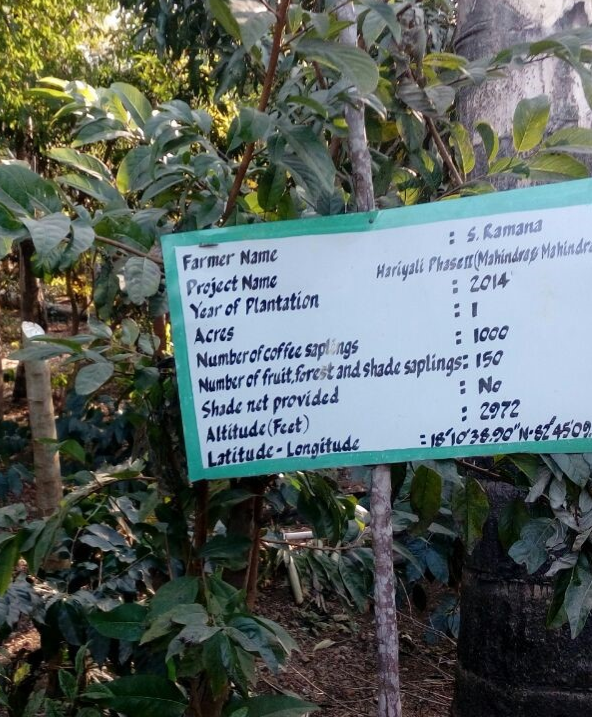 Farmer Name : S. Ramana
Project Name Hariyali Phase II (Mahindra & Mahindra
Year of Plantation : 2014
Acres : 1
Number of coffee saplings : 1000
Number of fruit, forest and shade saplings : 150
Shade net provided : No
Altitude (Feet) : 2972
Latitude - Longitude : 18°10'38.90"N-82°45'09.